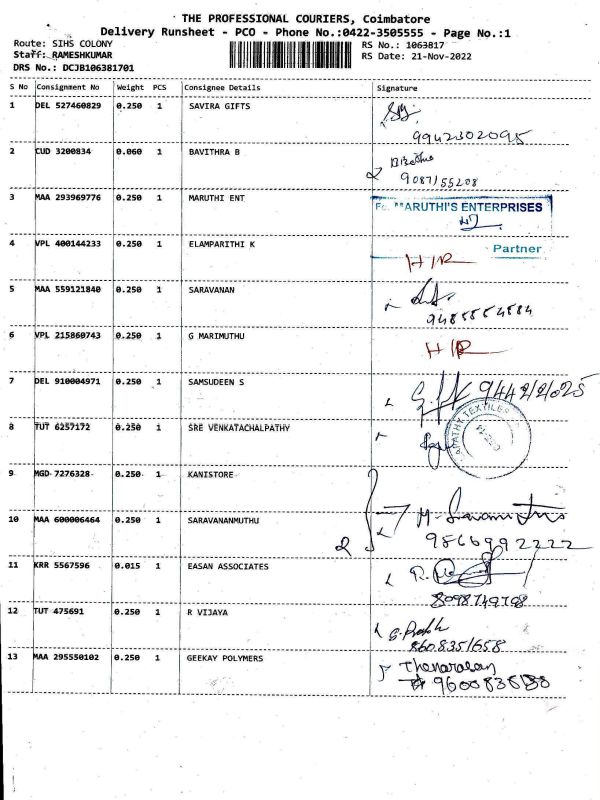 THE PROFESSIONAL COURIERS, Coimbatore
Delivery Runsheet - PCO - Phone No.:0422-3505555 - Page No.:1
Route: SIHS COLONY RS No.: 1063817
Staff: RAMESHKUMAR RS Date: 21-Nov-2022
DRS No.: DCJB106381701
S No Consignment No Weight PCS Consignee Details Signature
1 DEL 527460829 0.250 1 SAVIRA GIFTS
9942302095
2 CUD 3200834 0.060 1 BAVITHRA B
9087155208
3 MAA 293969776 0.250 1 MARUTHI ENT
For MARUTHI'S ENTERPRISES
Partner
4 VPL 400144233 0.250 1 ELAMPARITHI K
H/R
5 MAA 559121840 0.250 1 SARAVANAN
6 VPL 215860743 0.250 1 G MARIMUTHU
H/R
7 DEL 910004971 0.250 1 SAMSUDEEN S
8 TUT 6257172 0.250 1 SRE VENKATACHALPATHY
TEXTILES
9 MGD 7276328 0.250 1 KANISTORE
2
10 MAA 600006464 0.250 1 SARAVANANMUTHU
9866992222
11 KRR 5567596 0.015 1 EASAN ASSOCIATES
12 TUT 475691 0.250 1 R VIJAYA
8608351658
13 MAA 295550102 0.250 1 GEEKAY POLYMERS